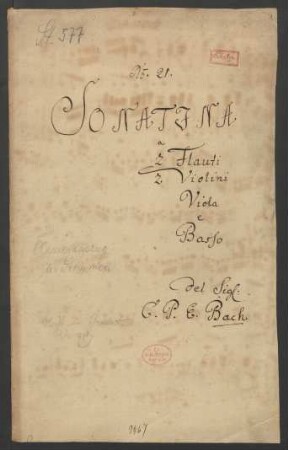 St. 577
No. 21.
SONATINA
a
2 Flauti
2 Violini
Viola
e
Basso
del Sigl:
C. P. E. Bach
1867